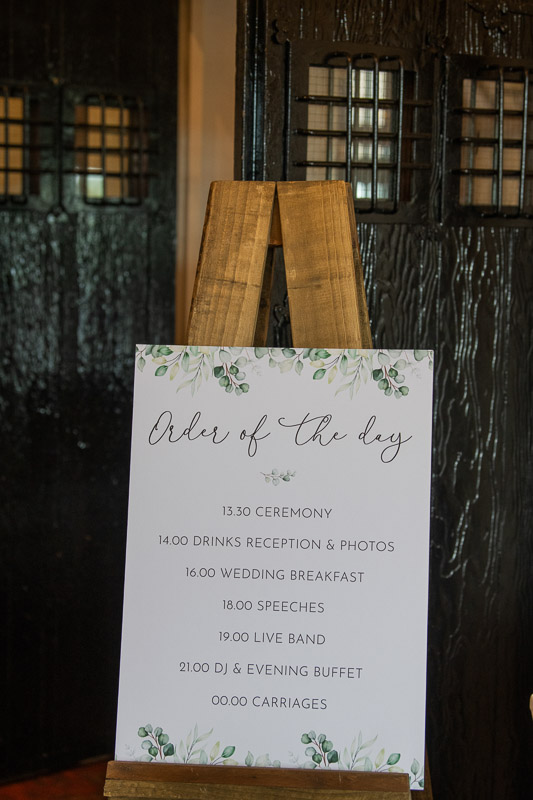 Order of the day
13.30 CEREMONY
14.00 DRINKS RECEPTION & PHOTOS
16.00 WEDDING BREAKFAST
18.00 SPEECHES
19.00 LIVE BAND
21.00 DJ & EVENING BUFFET
00.00 CARRIAGES